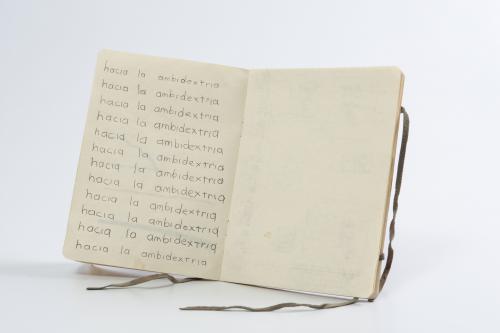 hacia la ambidextria
hacia la ambidextria
hacia la ambidextria
hacia la ambidextria
hacia la ambidextria
hacia la ambidextria
hacia la ambidextria
hacia la ambidextria
hacia la ambidextria
hacia la ambidextria
hacia la ambidextria
hacia la ambidextria